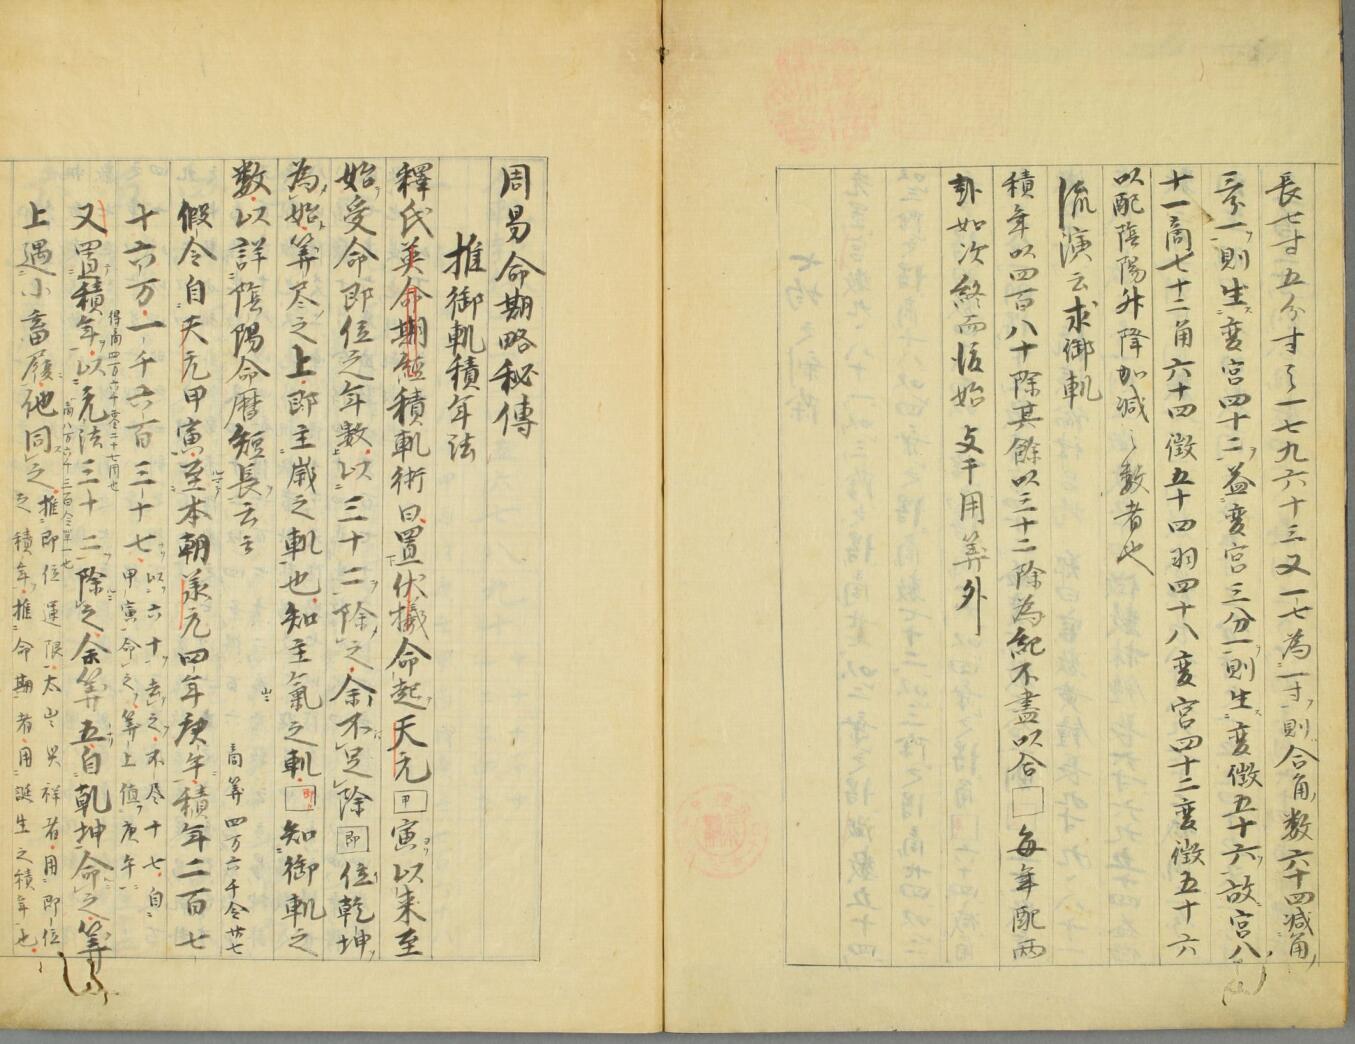 長七寸五分寸之一七九六十三又一七為一寸則合角數六十四減角
三分一則生変宮四十二益変宮三分一則生変徵五十六故宮八
十一商七十二角六十四徵五十四羽四十八変宮四十二変徵五十六
以配陰陽升降加減之數者也
流演云求御軌
積年以四百八十除其餘以三十二除為紀不盡以合□每年配兩
卦如次終而復始 支干用筭外
周易命期略秘傳
推御軌積年法
釋氏英命期經積軌術曰置伏犧命起天元甲寅以来至
始受命即位之年數以三十二除之余不足除即位乾坤
為始筭尽之上即主歲之軌也知主氣之軌即上知御軌之
數以詳陰陽命曆短長云云
假令自天元甲寅至本朝義元四年庚午積年二百七
商筭四万六千令廿七
十六万一千六百三十七以六十去之不尽十七自
甲寅命之筭上値庚午
又置積年以元法三十二除之余筭五自乾坤命之筭
上遇小畜履他同之推即位運限太山只祥者用即位
之積年推命期者用誕生之積年也